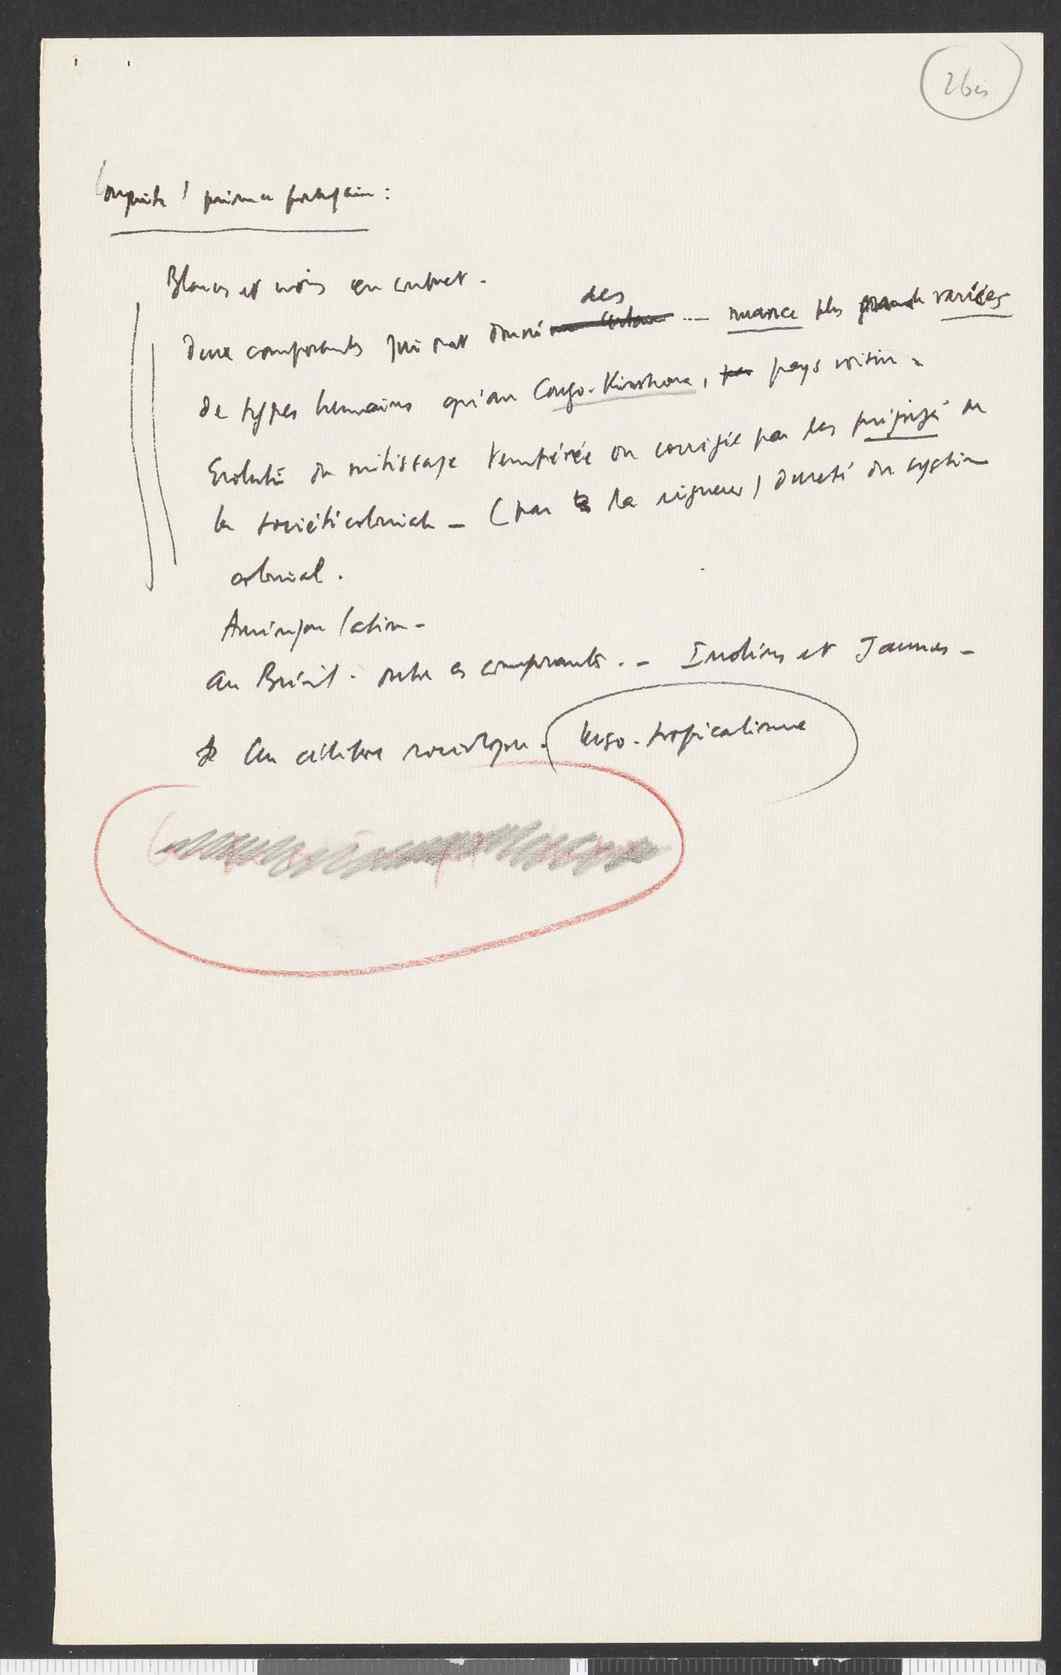 2bis
Conquête / présence portugaise :
Blancs et noirs en contact.
des
Deux composants qui ont donné ... nuance plus variées
de types humains qu'au Congo-Kinshasa, pays voisin.
Evolution du métissage tempérée ou corrigée par les préjugés de
la société coloniale - (par la rigueur / dureté du système
colonial.
Amérique latine -
Au Brésil. outre ces composants. - Indiens et Jaunes -
Un célèbre sociologue. luso-tropicalisme